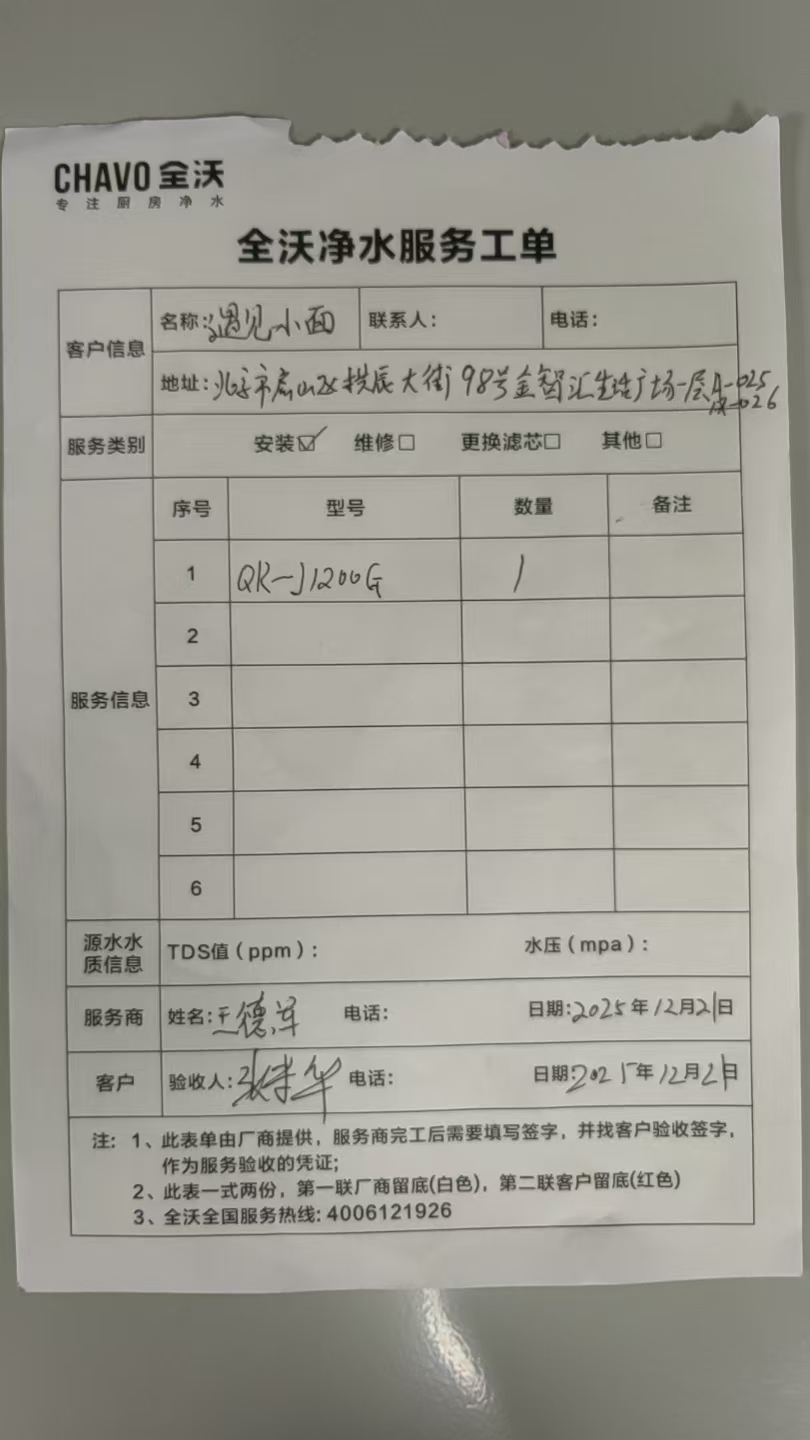 CHAVO 全沃
专注厨房净水
全沃净水服务工单
客户信息 名称：遇见小面 联系人： 电话：
地址：北京市房山区拱辰大街98号金智汇生活广场一层A-025
A-026
服务类别 安装☑ 维修□ 更换滤芯□ 其他□
服务信息 序号 型号 数量 备注
1 QR-J1200G 1
2
3
4
5
6
源水水质信息 TDS值（ppm）： 水压（mpa）：
服务商 姓名：王德军 电话： 日期：2025年12月21日
客户 验收人：张 华 电话： 日期：2025年12月21日
注：1、此表单由厂商提供，服务商完工后需要填写签字，并找客户验收签字，
作为服务验收的凭证；
2、此表一式两份，第一联厂商留底(白色)，第二联客户留底(红色)
3、全沃全国服务热线：4006121926